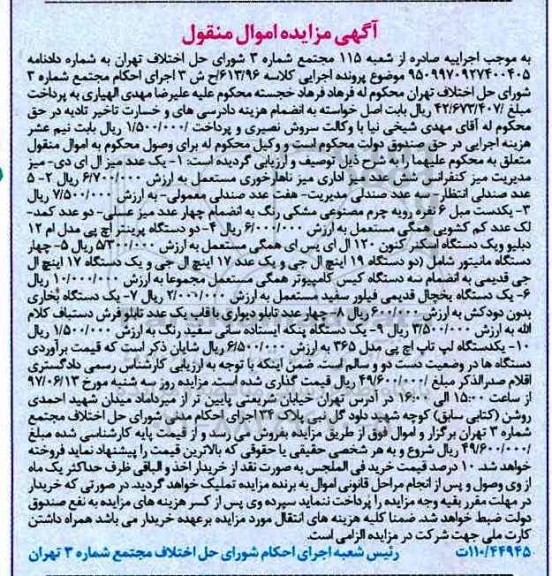 آگهی مزایده اموال منقول
به موجب اجراییه صادره از شعبه ۱۱۵ مجتمع شماره ۳ شورای حل اختلاف تهران به شماره دادنامه
۹۵۰۹۹۷۰۹۲۷۴۰۰۴۰۵ موضوع پرونده اجرایی کلاسه ۶۱۳/۹۶/ح ش ۳ اجرای احکام مجتمع شماره ۳
شورای حل اختلاف تهران محکوم له فرهاد فرهاد خجسته محکوم علیه علیرضا مهدی الهیاری به پرداخت
مبلغ ۴۲/۶۷۳/۴۰۷/ ریال بابت اصل خواسته به انضمام هزینه دادرسی های و خسارت تاخیر تادیه در حق
محکوم له آقای مهدی شیخی نیا با وکالت سروش نصیری و پرداخت ۱/۵۰۰/۰۰۰/ ریال بابت نیم عشر
هزینه اجرایی در حق صندوق دولت محکوم است و وکیل محکوم له برای وصول محکوم به اموال منقول
متعلق به محکوم علیهما را به شرح ذیل توصیف و ارزیابی گردیده است: ۱- یک عدد میز ال ای دی- میز
مدیریت میز کنفرانس شش عدد میز اداری میز ناهارخوری مستعمل به ارزش ۶/۷۰۰/۰۰۰ ریال ۲- ۵
عدد صندلی انتظار- سه عدد صندلی مدیریت- هفت عدد صندلی معمولی- به ارزش ۷/۵۰۰/۰۰۰ ریال
۳- یکدست مبل ۶ نفره رویه چرم مصنوعی مشکی رنگ به انضمام چهار عدد میز عسلی- دو عدد کمد-
لک عدد کم کشویی همگی مستعمل به ارزش ۶/۰۰۰/۰۰۰ ریال ۴- دو دستگاه پرینتر اچ پی مدل ام ۱۲
دبلیو ویک دستگاه اسکنر کنون ۱۲۰ ال ای پس ای همگی مستعمل به ارزش ۵/۳۰۰/۰۰۰ ریال ۵- چهار
دستگاه مانیتور شامل (دو دستگاه ۱۹ اینچ ال جی و یک عدد ۱۷ اینچ ال جی و یک دستگاه ۱۷ اینچ ال
جی قدیمی به انضمام سه دستگاه کیس کامپیوتر همگی مستعمل مجموعا به ارزش ۱۰/۰۰۰/۰۰۰ ریال
۶- یک دستگاه یخچال قدیمی فیلور سفید مستعمل به ارزش ۲/۰۰۰/۰۰۰ ریال ۷- یک دستگاه بخاری
بدون دودکش به ارزش ۶۰۰/۰۰۰ ریال ۸- چهار عدد تابلو دیواری با قاب یک عدد تابلو فرش دستباف کلام
الله به ارزش ۳/۵۰۰/۰۰۰ ریال ۹- یک دستگاه پنکه ایستاده سانی سفید رنگ به ارزش ۱/۵۰۰/۰۰۰ ریال
۱۰- یکدستگاه لپ تاپ اچ پی مدل ۳۶۵ به ارزش ۶/۵۰۰/۰۰۰ ریال شایان ذکر است که قیمت برآوردی
دستگاه ها در وضعیت دست دو و سالم است. ضمن اینکه با توجه به ارزیابی کارشناس رسمی دادگستری
اقلام صدرالذکر مبلغ ۴۹/۶۰۰/۰۰۰/ ریال قیمت گذاری شده است. مزایده روز سه شنبه مورخ ۹۷/۰۶/۱۳
از ساعت ۱۵:۰۰ الی ۱۶:۰۰ در آدرس تهران خیابان شریعتی پایین تر از میرداماد میدان شهید احمدی
روشن (کتابی سابق) کوچه شهید داود گل نبی پلاک ۳۴ اجرای احکام مدنی شورای حل اختلاف مجتمع
شماره ۳ تهران برگزار و اموال فوق از طریق مزایده بفروش می رسد و از قیمت پایه کارشناسی شده مبلغ
۴۹/۶۰۰/۰۰۰/ ریال شروع و به هر شخصی حقیقی یا حقوقی که بالاترین قیمت را پیشنهاد نماید فروخته
خواهد شد. ۱۰ درصد قیمت خرید فی المجلس به صورت نقد از خریدار اخذ و الباقی ظرف حداکثر یک ماه
از وی وصول و پس از انجام مراحل قانونی اموال به برنده مزایده تملیک خواهد گردید. در صورتی که خریدار
در مهلت مقرر بقیه وجه مزایده را پرداخت ننماید سپرده وی پس از کسر هزینه های مزایده به نفع صندوق
دولت ضبط خواهد شد. ضمنا کلیه هزینه های انتقال مورد مزایده برعهده خریدار می باشد همراه داشتن
کارت ملی جهت شرکت در مزایده الزامی است.
۱۱۰/۴۴۹۴۵ت رئیس شعبه اجرای احکام شورای حل اختلاف مجتمع شماره ۳ تهران